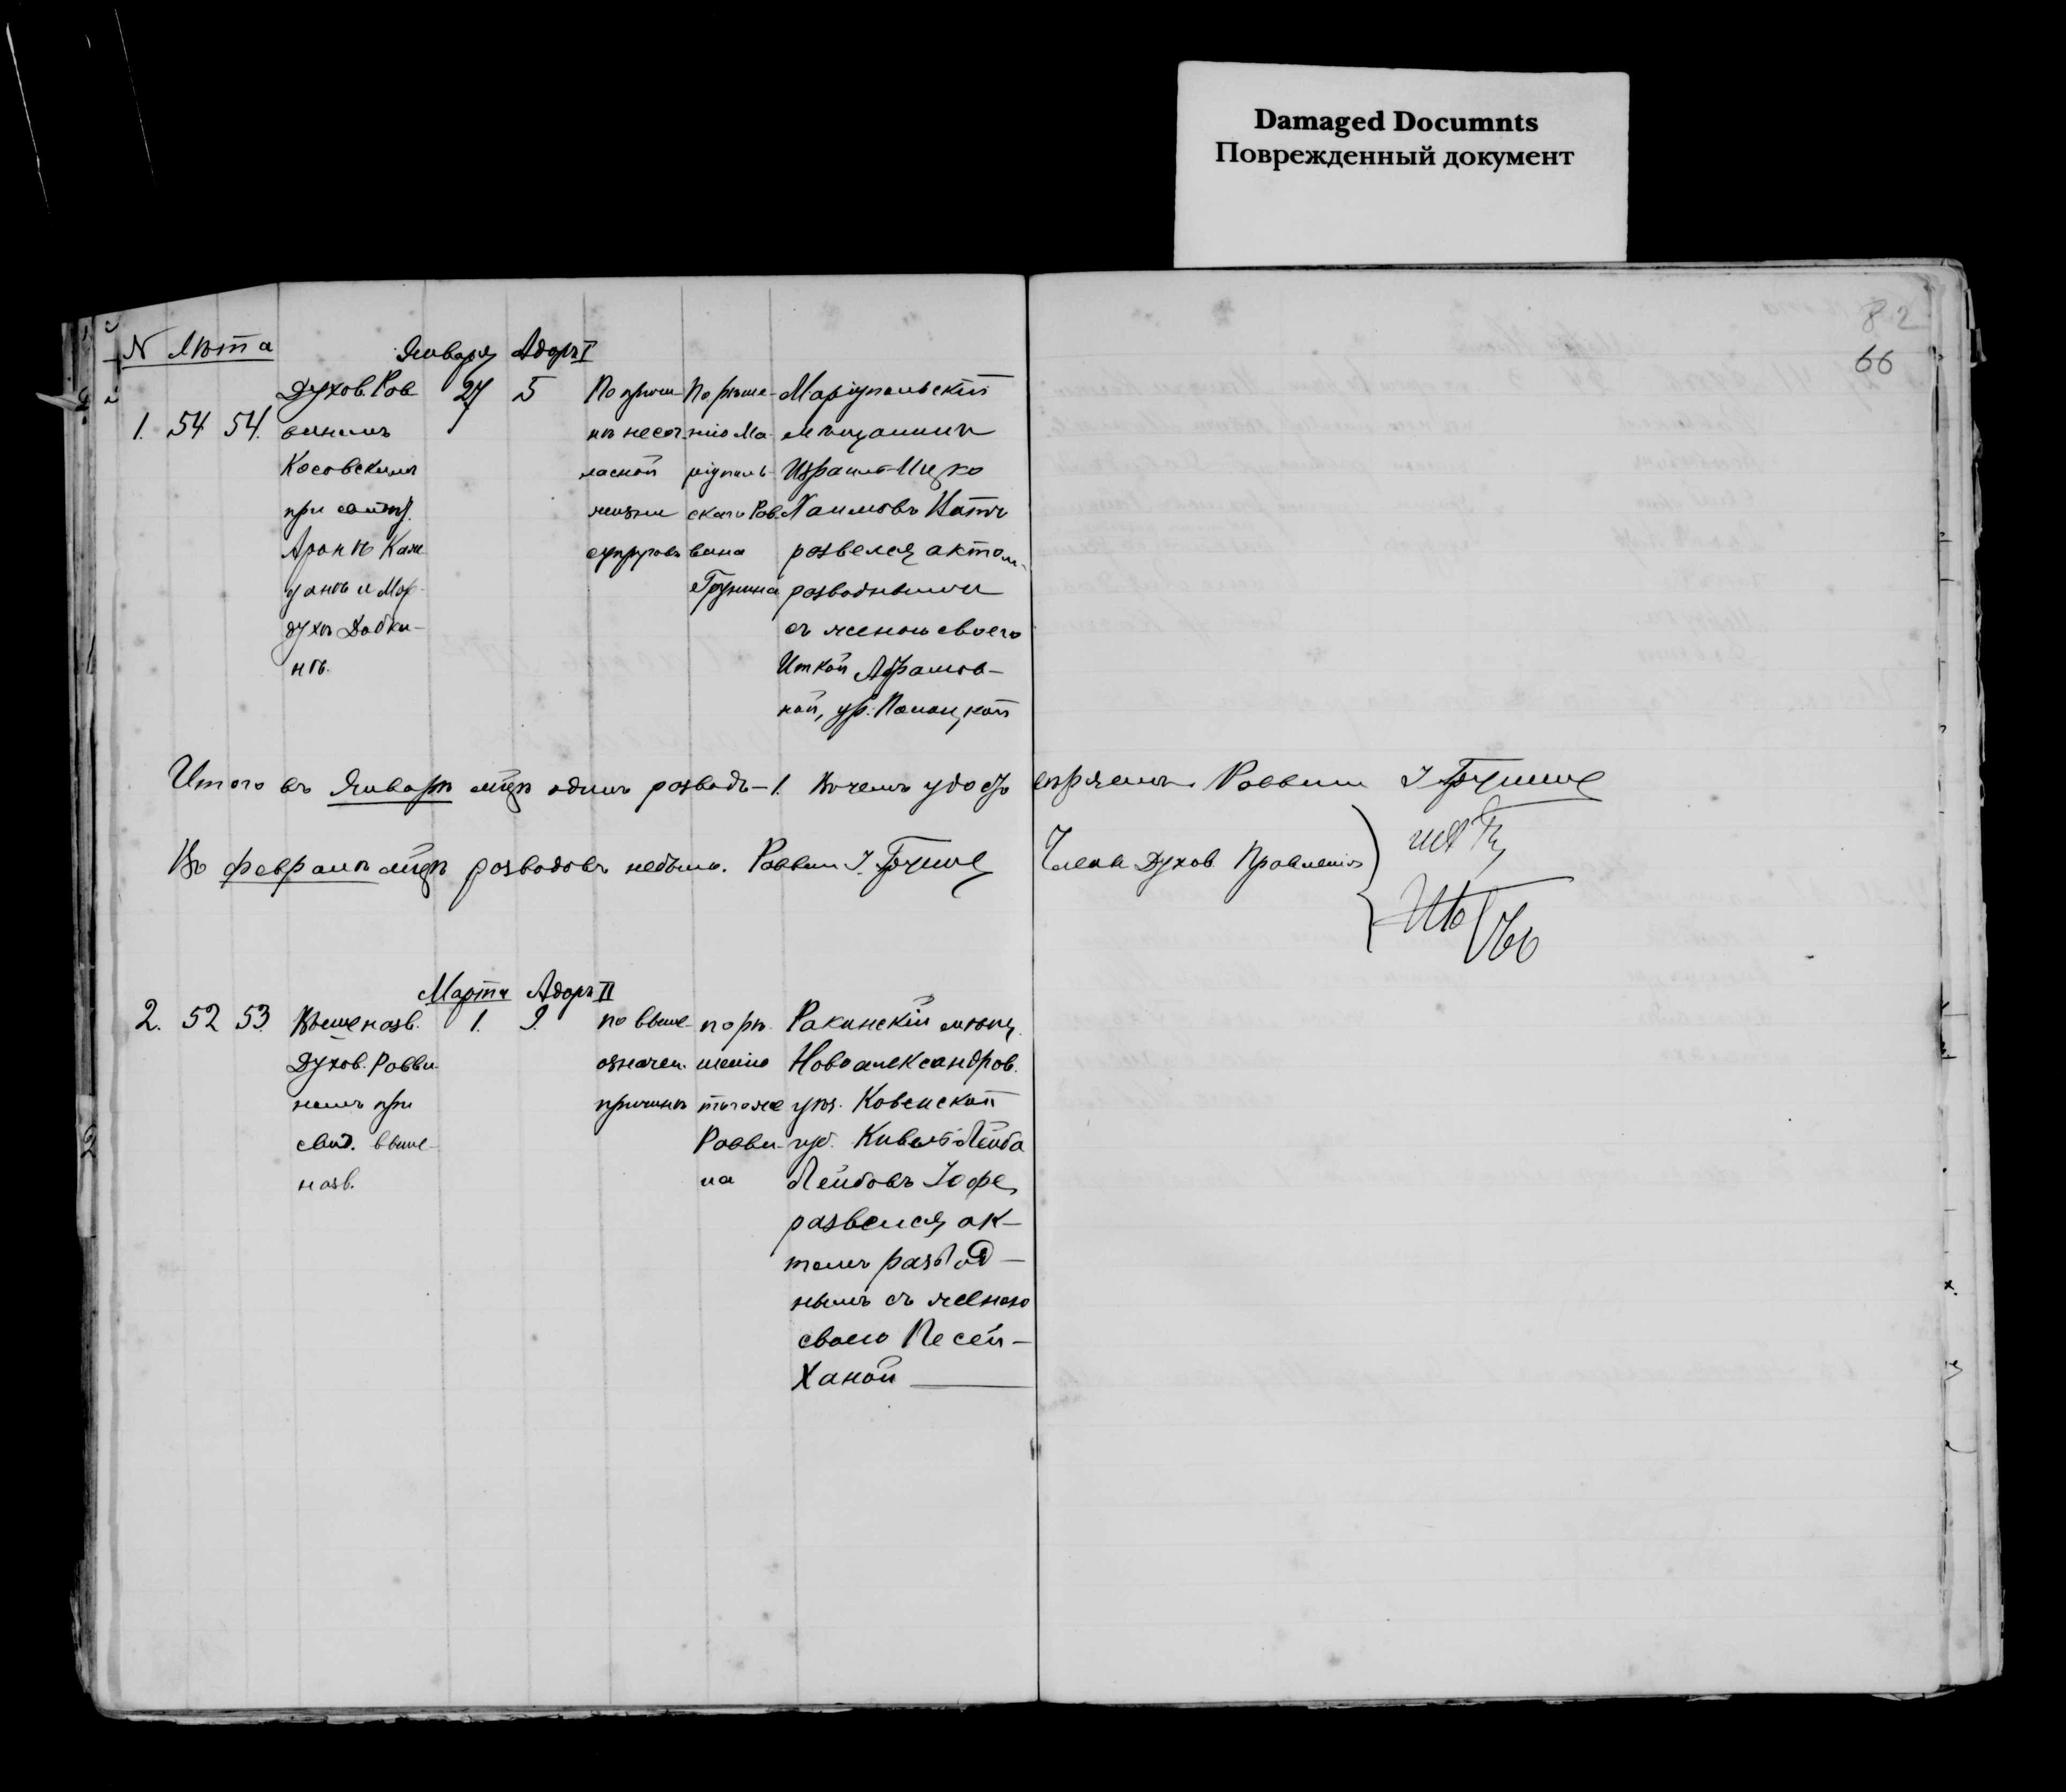 Damaged Documnts
Поврежденный документ
82
66
N Лѣта
Января Адоръ I
1. 54 54.
Духов. Рав
виномъ
Косовскимъ
при
Аронѣ Каж
данѣ и Мор
духѣ Добки-
нѣ.
27 5
По причи-
нѣ несог-
ласной
жизни
супруговъ
По рѣше-
нію Ма-
ріуполь-
скаго Рав-
вина
Грунина
Маріупольскій
мѣщанинъ
Израиль-Ицко
Хаимовъ
развелся актом
разводнымъ
съ женою своею
Иткой Абрамов-
ной, ур.
Итого въ Январѣ мцѣ одинъ разводъ-1. Въ чемъ удосто вѣряемъ Раввин
Въ февралѣ мцѣ разводовъ небыло. Раввин
Члены Духов Правленія
Марта Адоръ II
2. 52 53.
Вышеназв.
Духов. Равви-
номъ при
свид. выше-
назв.
1. 9.
по выше-
означен.
причинѣ
по рѣ-
шенію
тогоже
Равви-
на
Ракинскій мѣщ.
Новоалександров.
уѣз. Ковенской
губ. Кивель-Лейба
Лейбовъ Іофе
развелся ак-
томъ развод-
нымъ съ женою
своею Песей-
Ханой